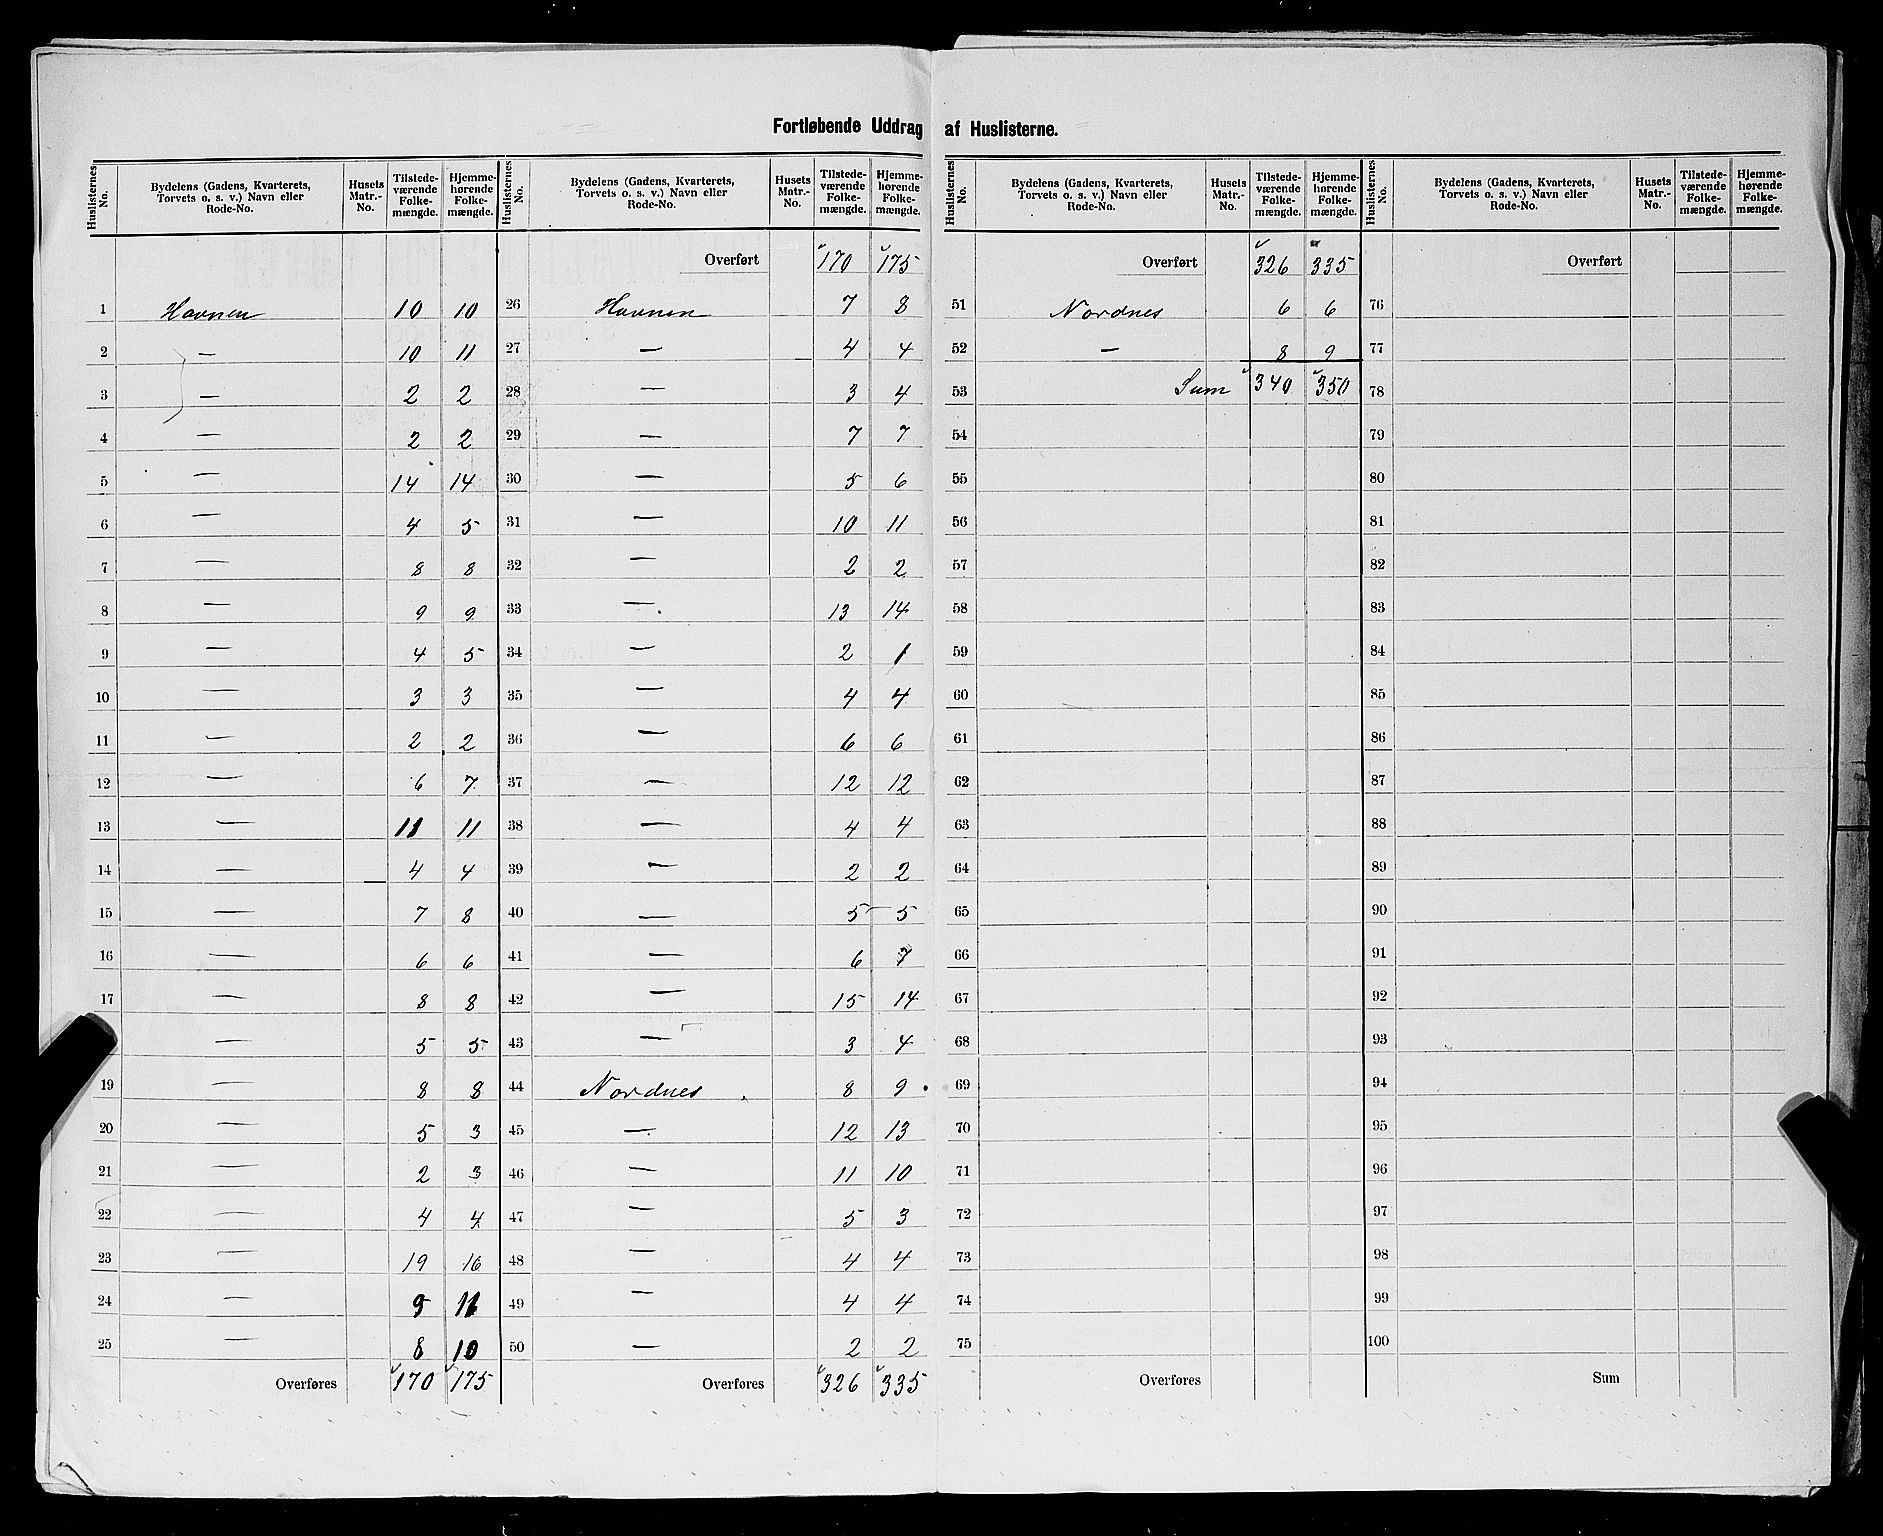 Fortløbende Uddrag af Huslisterne.
Huslisternes No. | Bydelens (Gadens, Kvarterets, Torvets o. s. v.) Navn eller Rode-No. | Husets Matr.-No. | Tilstedeværende Folkemængde. | Hjemmehørende Folkemængde. | Huslisternes No. | Bydelens (Gadens, Kvarterets, Torvets o. s. v.) Navn eller Rode-No. | Husets Matr.-No. | Tilstedeværende Folkemængde. | Hjemmehørende Folkemængde.
Overført 170 175
1 Havnen 10 10
2 — 10 11
3 — 2 2
4 — 2 2
5 — 14 14
6 — 4 5
7 — 8 8
8 — 9 9
9 — 4 5
10 — 3 3
11 — 2 2
12 — 6 7
13 — 11 11
14 — 4 4
15 — 7 8
16 — 6 6
17 — 8 8
— 5 5
19 — 8 8
20 — 5 3
21 — 2 3
22 — 4 4
23 — 19 16
24 — 9 11
25 — 8 10
Overføres 170 175
26 Havnen 7 8
27 — 4 4
28 — 3 4
29 — 7 7
30 — 5 6
31 — 10 11
32 — 2 2
33 — 13 14
34 — 2 1
35 — 4 4
36 — 6 6
37 — 12 12
38 — 4 4
39 — 2 2
40 — 5 5
41 — 6 7
42 — 15 14
43 — 3 4
44 Nordnes 8 9
45 — 12 13
46 — 11 10
47 — 5 3
48 — 4 4
49 — 4 4
50 — 2 2
Overføres 326 335
Huslisternes No. | Bydelens (Gadens, Kvarterets, Torvets o. s. v.) Navn eller Rode-No. | Husets Matr.-No. | Tilstedeværende Folkemængde. | Hjemmehørende Folkemængde. | Huslisternes No. | Bydelens (Gadens, Kvarterets, Torvets o. s. v.) Navn eller Rode-No. | Husets Matr.-No. | Tilstedeværende Folkemængde. | Hjemmehørende Folkemængde.
Overført 326 335
51 Nordnes 6 6
52 — 8 9
53 Sum 340 350
54
55
56
57
58
59
60
61
62
63
64
65
66
67
68
69
70
71
72
73
74
75
Overføres
Overført
76
77
78
79
80
81
82
83
84
85
86
87
88
89
90
91
92
93
94
95
96
97
98
99
100
Sum